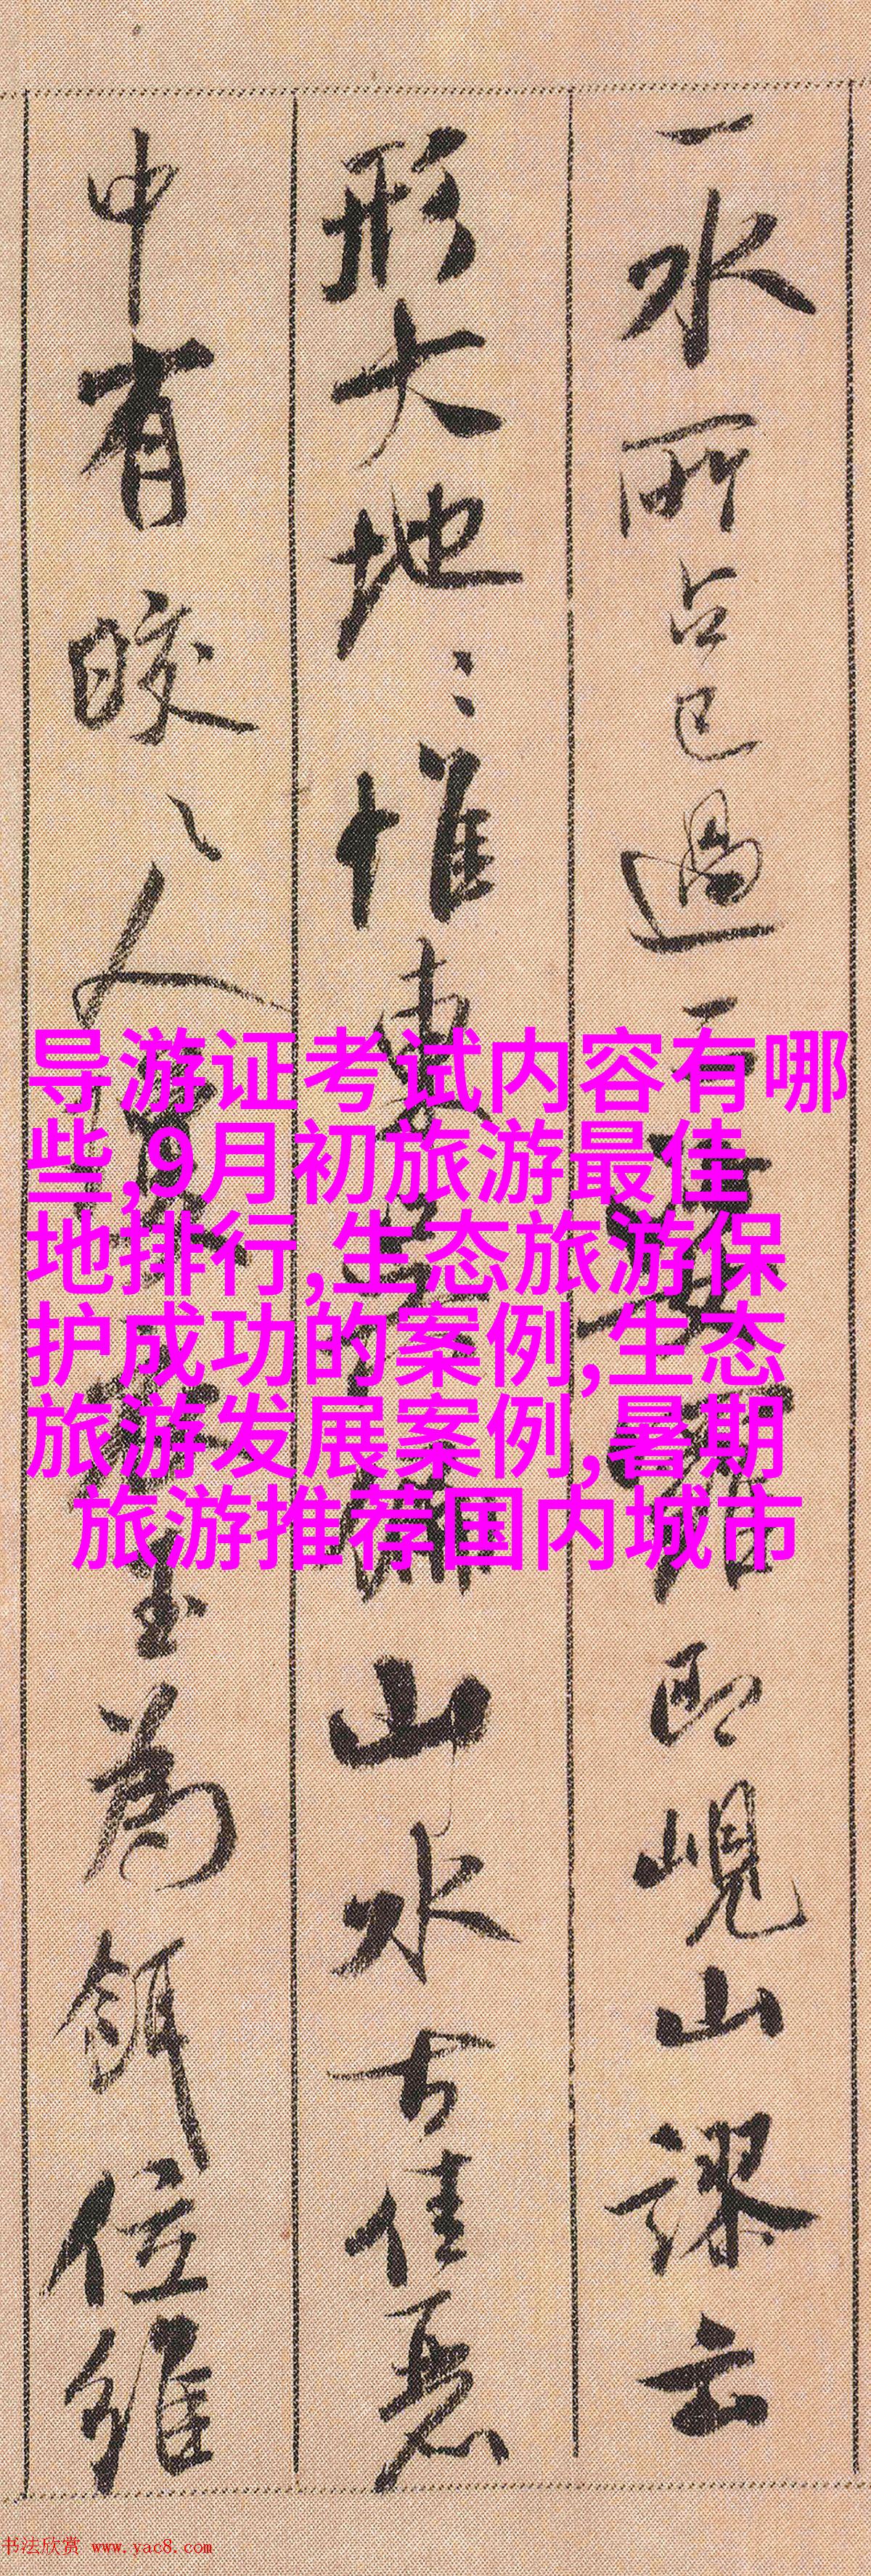 一水所占已過
即峴山謬云
形大地〻惟東
山水古佳惡
中有皎〻人
玉為餌位維
导游证考试内容有哪
些,9月初旅游最佳
地排行,生态旅游保
护成功的案例,生态
旅游发展案例,暑期
旅游推荐国内城市
书法欣赏 www.yac8.com